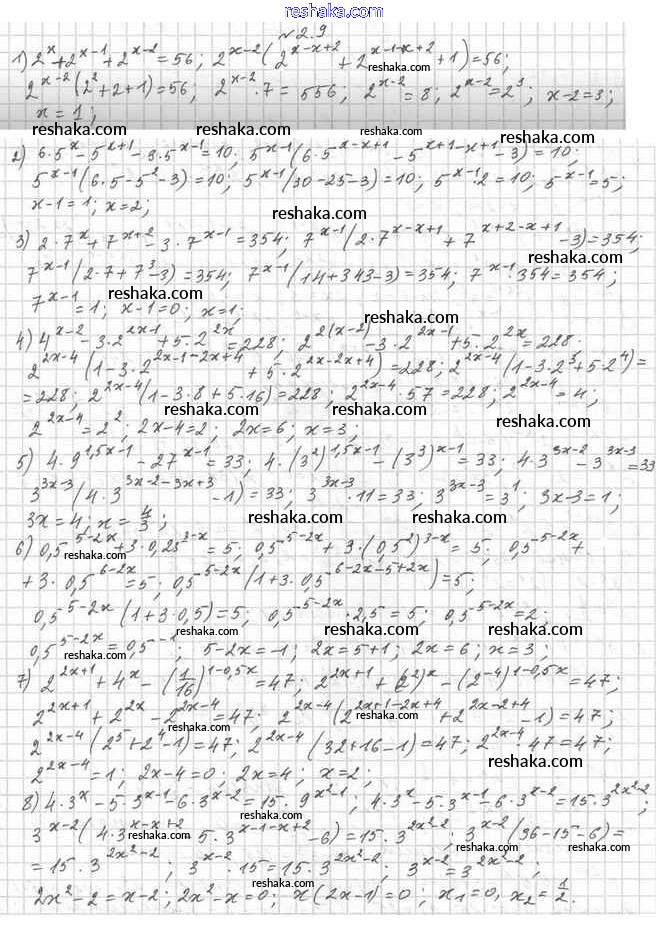 www.reshaka.com
№ 2.9
1) 2^x + 2^{x-1} + 2^{x-2} = 56; 2^{x-2}(2^{x-x+2} + 2^{x-1-x+2} + 1) = 56;
reshaka.com
2^{x-2}(2^2+2+1) = 56; 2^{x-2}·7 = 556; 2^{x-2} = 8; 2^{x-2} = 2^3; x-2=3;
x = 1;
reshaka.com reshaka.com reshaka.com
2) 6·5^x - 5^{x+1} - 3·5^{x-1} = 10; 5^{x-1}(6·5^{x-x+1} - 5^{x+1-x+1} - 3) = 10;
5^{x-1}(6·5-5^2-3) = 10; 5^{x-1}(30-25-3) = 10; 5^{x-1}·2 = 10; 5^{x-1} = 5;
x-1=1; x=2;
reshaka.com
3) 2·7^x + 7^{x+2} - 3·7^{x-1} = 354; 7^{x-1}(2·7^{x-x+1} + 7^{x+2-x+1} - 3) = 354;
7^{x-1}(2·7+7^3-3) = 354; 7^{x-1}(14+343-3) = 354; 7^{x-1}·354 = 354;
reshaka.com reshaka.com
7^{x-1} = 1; x-1=0; x=1;
reshaka.com
4) 4^{x-2} - 3·2^{2x-1} + 5·2^{2x} = 228; 2^{2(x-2)} - 3·2^{2x-1} + 5·2^{2x} = 228.
2^{2x-4}(1-3·2^{2x-1-2x+4} + 5·2^{2x-2x+4}) = 228; 2^{2x-4}(1-3·2^3+5·2^4) =
= 228; 2^{2x-4}(1-3·8+5·16) = 228; 2^{2x-4}·57 = 228; 2^{2x-4} = 4;
reshaka.com reshaka.com reshaka.com
2^{2x-4} = 2^2; 2x-4=2; 2x=6; x=3;
5) 4·9^{1,5x-1} - 27^{x-1} = 33; 4·(3^2)^{1,5x-1} - (3^3)^{x-1} = 33; 4·3^{3x-2} - 3^{3x-3} = 33
3^{3x-3}(4·3^{3x-2-3x+3} - 1) = 33; 3^{3x-3}·11 = 33; 3^{3x-3} = 3^1; 3x-3=1;
3x=4; x = 4/3;
reshaka.com reshaka.com
6) 0,5^{5-2x} + 3·0,25^{3-x} = 5; 0,5^{5-2x} + 3·(0,5^2)^{3-x} = 5; 0,5^{5-2x} +
reshaka.com
+ 3·0,5^{6-2x} = 5; 0,5^{5-2x}(1+3·0,5^{6-2x-5+2x}) = 5;
0,5^{5-2x}(1+3·0,5) = 5; 0,5^{5-2x}·2,5 = 5; 0,5^{5-2x} = 2;
reshaka.com reshaka.com reshaka.com
0,5^{5-2x} = 0,5^{-1}; 5-2x=-1; 2x=5+1; 2x=6; x=3;
7) 2^{2x+1} + 4^x - (1/16)^{1-0,5x} = 47; 2^{2x+1} + (2^2)^x - (2^{-4})^{1-0,5x} = 47;
2^{2x+1} + 2^{2x} - 2^{2x-4} = 47; 2^{2x-4}(2^{2x+1-2x+4} + 2^{2x-2x+4} - 1) = 47;
reshaka.com reshaka.com
2^{2x-4}(2^5+2^4-1) = 47; 2^{2x-4}(32+16-1) = 47; 2^{2x-4}·47 = 47;
reshaka.com reshaka.com
2^{2x-4} = 1; 2x-4=0; 2x=4; x=2;
8) 4·3^x - 5·3^{x-1} - 6·3^{x-2} = 15·9^{x^2-1}; 4·3^x - 5·3^{x-1} - 6·3^{x-2} = 15·3^{2x^2-2};
3^{x-2}(4·3^{x-x+2} - 5·3^{x-1-x+2} - 6) = 15·3^{2x^2-2}; 3^{x-2}(36-15-6) =
reshaka.com reshaka.com
= 15·3^{2x^2-2}; 3^{x-2}·15 = 15·3^{2x^2-2}; 3^{x-2} = 3^{2x^2-2};
reshaka.com reshaka.com
2x^2-2=x-2; 2x^2-x=0; x(2x-1)=0; x_1=0, x_2=1/2.
reshaka.com reshaka.com